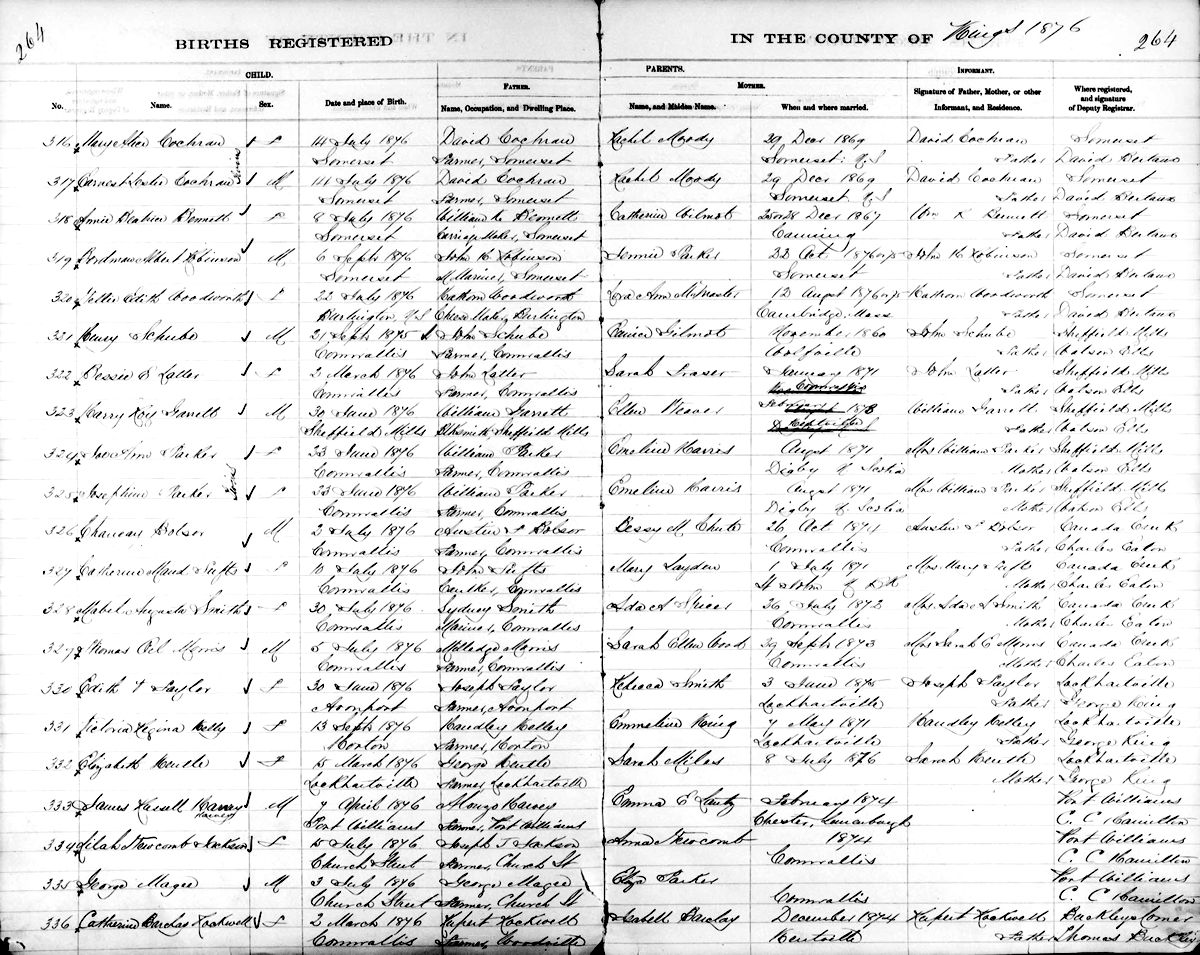 264
BIRTHS REGISTERED
IN THE COUNTY OF Kings 1876
264
CHILD.
PARENTS.
INFORMANT.
FATHER.
MOTHER.
No. Name. Sex. Date and place of Birth. Name, Occupation, and Dwelling Place. Name, and Maiden Name. When and where married. Signature of Father, Mother, or other Informant, and Residence. Where registered, and signature of Deputy Registrar.
316 Mary Alice Cochran F 14 July 1876 David Cochran Rachel Moody 29 Decr 1869 David Cochran Somerset
Somerset Farmer, Somerset Somerset Father David Berteaux
317 Earnest Leslie Cochran M 14 July 1876 David Cochran Rachel Moody 29 Decr 1869 David Cochran Somerset
Somerset Farmer, Somerset Somerset Father David Berteaux
318 Annie Beatrice Bennett F 8 July 1876 William K Bennett Catherine Wilmot Decr 1867 Wm K Bennett Somerset
Somerset Carriage Maker, Somerset Canning Father David Berteaux
319 Albert Robinson M 6 Sept 1876 John Robinson Jennie Parker 22 Oct John Robinson Somerset
Somerset M Mariner, Somerset Somerset Father David Berteaux
320 Edith Woodworth F 22 July 1876 Woodworth Ann McMaster 12 August Woodworth Somerset
Burlington, NS Cheese Maker, Burlington Cambridge, Mass Father David Berteaux
321 Henry Schube M 21 Sept 1875 John Schube November 1860 John Schube Sheffield Mills
Cornwallis Farmer, Cornwallis Wolfville Father Watson Ells
322 Bessie B Latter F 2 March 1876 John Latter Sarah Fraser January 1871 John Latter Sheffield Mills
Cornwallis Farmer, Cornwallis Cornwallis Father Watson Ells
323 Harry Roy Garrett M 30 June 1876 William Garrett Ellen Weaver February William Garrett Sheffield Mills
Sheffield Mills Blksmith Sheffield Mills Father Watson Ells
324 Parker F 23 June 1876 William Parker Emeline Harris August 1871 Mrs William Parker Sheffield Mills
Cornwallis Farmer, Cornwallis Digby N Scotia Mother Watson Ells
325 Josephine Parker F 23 June 1876 William Parker Emeline Harris August 1871 Mrs William Parker Sheffield Mills
Cornwallis Farmer, Cornwallis Digby N Scotia Mother Watson Ells
326 M 2 July 1876 Austin Bessy M Chute 26 Oct 1874 Austin Canada Creek
Cornwallis Farmer, Cornwallis Cornwallis Father Charles Eaton
327 Catherine Maud Tufts F 10 July 1876 John Tufts Mary Layden 1 July 1871 Mrs Mary Tufts Canada Creek
Cornwallis Caulker, Cornwallis St John N B Mother Charles Eaton
328 Mabel Augusta Smith F 30 July 1876 Sydney Smith Ida A Spicer 26 July 1872 Mrs Ida A Smith Canada Creek
Cornwallis Mariner, Cornwallis Cornwallis Mother Charles Eaton
329 Thomas Morris M 5 July 1876 Milledge Morris Sarah Ellen Wood 29 Sept 1873 Mrs Sarah E Morris Canada Creek
Cornwallis Farmer, Cornwallis Cornwallis Mother Charles Eaton
330 Edith Taylor F 30 June 1876 Joseph Taylor Rebecca Smith 3 June 1875 Joseph Taylor Lockhartville
Avonport Farmer, Avonport Lockhartville Father George King
331 Victoria Regina Kelly F 13 Sept 1876 Handley Kelley Emmeline King 7 May 1871 Handley Kelley Lockhartville
Horton Farmer, Horton Lockhartville Father George King
332 Elizabeth F 15 March 1876 George Sarah Miles 8 July 1876 Sarah Lockhartville
Lockhartville Farmer, Lockhartville Mother George King
333 James Harvey M 7 April 1876 Alonzo Harvey Emma E February 1874 Port Williams
Harvey Port Williams Farmer, Port Williams Chester, Lunenburgh C. C Hamilton
334 Lilah Newcomb Jackson F 15 July 1876 Joseph Jackson Anna Newcomb 1874 Port Williams
Church Street Farmer, Church St Cornwallis C. C Hamilton
335 George Magee M 3 July 1876 George Magee Eliza Parker Port Williams
Church Street Farmer, Church St Cornwallis C. C Hamilton
336 Catherine Barclay Rockwell F 2 March 1876 Rupert Rockwell Isabell Barclay December 1874 Rupert Rockwell Buckleys Corner
Cornwallis Farmer, Woodville Kentville Father Thomas Buckley